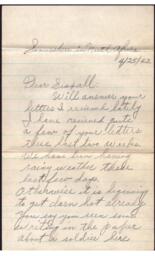 Somewhere in North Africa
4/25/43
Dear Siscall.
Will answer your
letters I received lately
I have received quite
a few of your letters
these last two weeks
We have been having
rainy weather these
last few days.
Otherwise it is beginning
to get darn hot already
You say you seen some
writing in the paper
about a soldier here